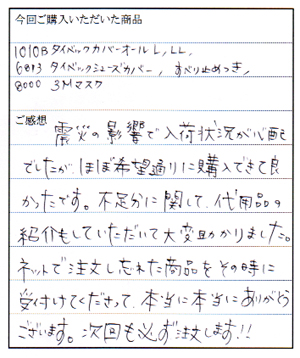 今回ご購入いただいた商品
1010B タイベックカバーオール L, LL,
6813 タイベックシューズカバー, すべり止めつき,
8000 3Mマスク
ご感想
震災の影響で入荷状況が心配
でしたが、ほぼ希望通りに購入できて良
かったです。不足分に関して、代用品の
紹介もしていただいて大変助かりました。
ネットで注文し忘れた商品をその時に
受付けてくださって、本当に本当にありがとう
ございます。次回も必ず注文します!!